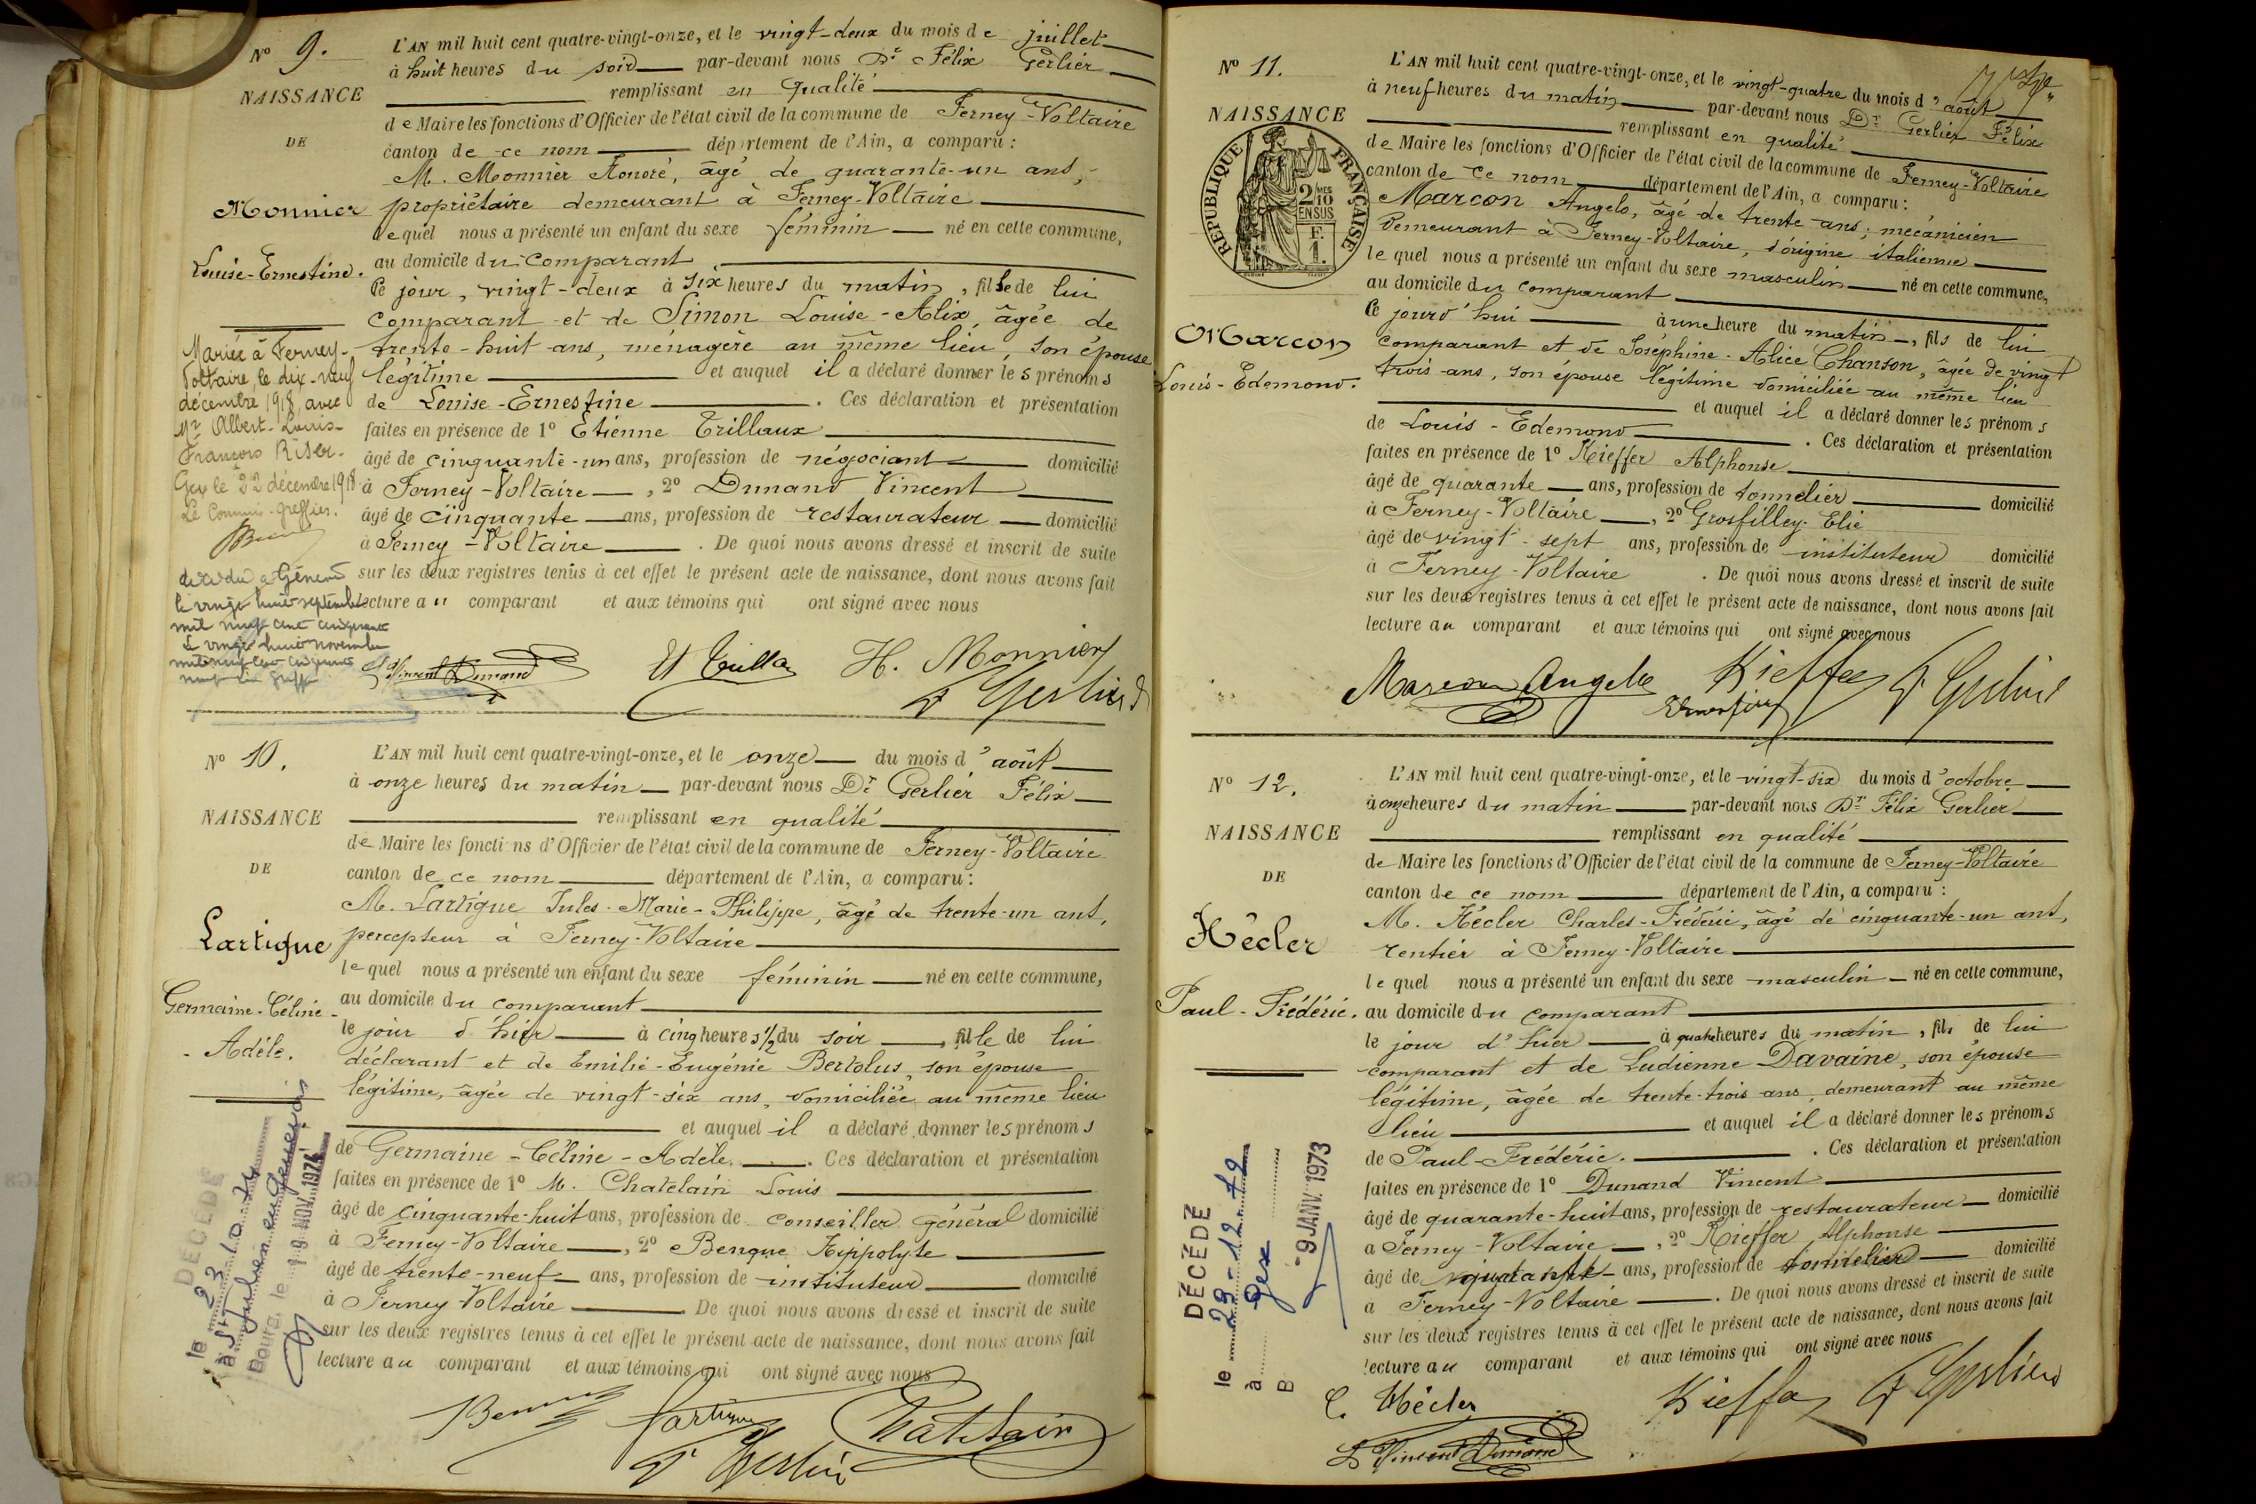 N° 9.
NAISSANCE
DE
Monnier
Louise-Ernestine.
Mariée à Ferney-
Voltaire, le dix-neuf
décembre 1918, avec
Mr Albert-Louis-
François Riser.
Gex le 22 décembre 1918
Le Commis-greffier.
le vingt huit septembre
mil neuf cent cinquante
le vingt huit novembre
L'AN mil huit cent quatre-vingt-onze, et le vingt-deux du mois de juillet
à huit heures du soir par-devant nous Dr Félix Gerlier
remplissant en qualité
de Maire les fonctions d'Officier de l'état civil de la commune de Ferney-Voltaire
canton de ce nom département de l'Ain, a comparu :
M. Monnier Honoré, âgé de quarante-un ans,
propriétaire demeurant à Ferney-Voltaire
lequel nous a présenté un enfant du sexe féminin né en cette commune,
au domicile du comparant
Ce jour, vingt-deux à six heures du matin, fille de lui
comparant et de Simon Louise-Alix, âgée de
trente-huit ans, ménagère au même lieu, son épouse
légitime et auquel il a déclaré donner les prénoms
de Louise-Ernestine . Ces déclaration et présentation
faites en présence de 1° Etienne Trillaux
âgé de cinquante-un ans, profession de négociant domicilié
à Ferney-Voltaire , 2° Dunand Vincent
âgé de cinquante ans, profession de restaurateur domicilié
à Ferney-Voltaire . De quoi nous avons dressé et inscrit de suite
sur les deux registres tenus à cet effet le présent acte de naissance, dont nous avons fait
lecture au comparant et aux témoins qui ont signé avec nous
Vincent Dunand H. Monnier
Dr Gerlier
N° 10.
NAISSANCE
DE
Lartigue
Germaine-Céline-
-Adèle.
DÉCÉDÉ
le 23.10.74
à St Julien en Genevois
Bourg, le 19 NOV 1974
L'AN mil huit cent quatre-vingt-onze, et le onze du mois d'août
à onze heures du matin par-devant nous Dr Gerlier Félix
remplissant en qualité
de Maire les fonctions d'Officier de l'état civil de la commune de Ferney-Voltaire
canton de ce nom département de l'Ain, a comparu :
M. Lartigue Jules-Marie-Philippe, âgé de trente-un ans,
percepteur à Ferney-Voltaire
lequel nous a présenté un enfant du sexe féminin né en cette commune,
au domicile du comparant
le jour d'hier à cinq heures 1/2 du soir , fille de lui
déclarant et de Emilie-Eugénie Bertolus, son épouse
légitime, âgée de vingt-six ans, domiciliée au même lieu
et auquel il a déclaré donner les prénoms
de Germaine-Céline-Adèle. . Ces déclaration et présentation
faites en présence de 1° M. Chatelain Louis
âgé de cinquante-huit ans, profession de conseiller général domicilié
à Ferney-Voltaire , 2° Benque Hippolyte
âgé de trente-neuf ans, profession de instituteur domicilié
à Ferney Voltaire . De quoi nous avons dressé et inscrit de suite
sur les deux registres tenus à cet effet le présent acte de naissance, dont nous avons fait
lecture au comparant et aux témoins qui ont signé avec nous
Lartigue Chatelain
Dr Gerlier
N° 11.
NAISSANCE
RÉPUBLIQUE FRANÇAISE
2/10 EN SUS
F.
1.
Marcon
Louis-Edemond.
L'AN mil huit cent quatre-vingt-onze, et le vingt-quatre du mois d'août
à neuf heures du matin par-devant nous Dr Gerlier Félix
remplissant en qualité
de Maire les fonctions d'Officier de l'état civil de la commune de Ferney-Voltaire
canton de ce nom département de l'Ain, a comparu :
Marcon Angelo, âgé de trente ans, mécanicien
demeurant à Ferney-Voltaire, d'origine italienne
lequel nous a présenté un enfant du sexe masculin né en cette commune,
au domicile du comparant
Ce jourd'hui à une heure du matin, fils de lui
comparant et de Joséphine-Alice Chanson, âgée de vingt
trois ans, son épouse légitime domiciliée au même lieu
et auquel il a déclaré donner les prénoms
de Louis-Edemond . Ces déclaration et présentation
faites en présence de 1° Kieffer Alphonse
âgé de quarante ans, profession de tonnelier domicilié
à Ferney-Voltaire , 2° Grosfilley Elie
âgé de vingt-sept ans, profession de instituteur domicilié
à Ferney-Voltaire . De quoi nous avons dressé et inscrit de suite
sur les deux registres tenus à cet effet le présent acte de naissance, dont nous avons fait
lecture au comparant et aux témoins qui ont signé avec nous
Marcon Angelo Kieffer Dr Gerlier
N° 12.
NAISSANCE
DE
Hécler
Paul-Frédéric.
DÉCÉDÉ
le 29-12-72
à Gex
B
-9 JANV. 1973
L'AN mil huit cent quatre-vingt-onze, et le vingt-six du mois d'octobre
à onze heures du matin par-devant nous Dr Félix Gerlier
remplissant en qualité
de Maire les fonctions d'Officier de l'état civil de la commune de Ferney-Voltaire
canton de ce nom département de l'Ain, a comparu :
M. Hécler Charles-Frédéric, âgé de cinquante-un ans,
rentier à Ferney-Voltaire
lequel nous a présenté un enfant du sexe masculin né en cette commune,
au domicile du comparant
le jour d'hier à quatre heures du matin, fils de lui
comparant et de Ludienne Davaine, son épouse
légitime, âgée de trente-trois ans, demeurant au même
lieu et auquel il a déclaré donner les prénoms
de Paul-Frédéric. . Ces déclaration et présentation
faites en présence de 1° Dunand Vincent
âgé de quarante-huit ans, profession de restaurateur domicilié
à Ferney-Voltaire , 2° Kieffer Alphonse
âgé de quarante ans, profession de tonnelier domicilié
à Ferney-Voltaire . De quoi nous avons dressé et inscrit de suite
sur les deux registres tenus à cet effet le présent acte de naissance, dont nous avons fait
lecture au comparant et aux témoins qui ont signé avec nous
C. Hécler Kieffer Dr Gerlier
Vincent Dunand